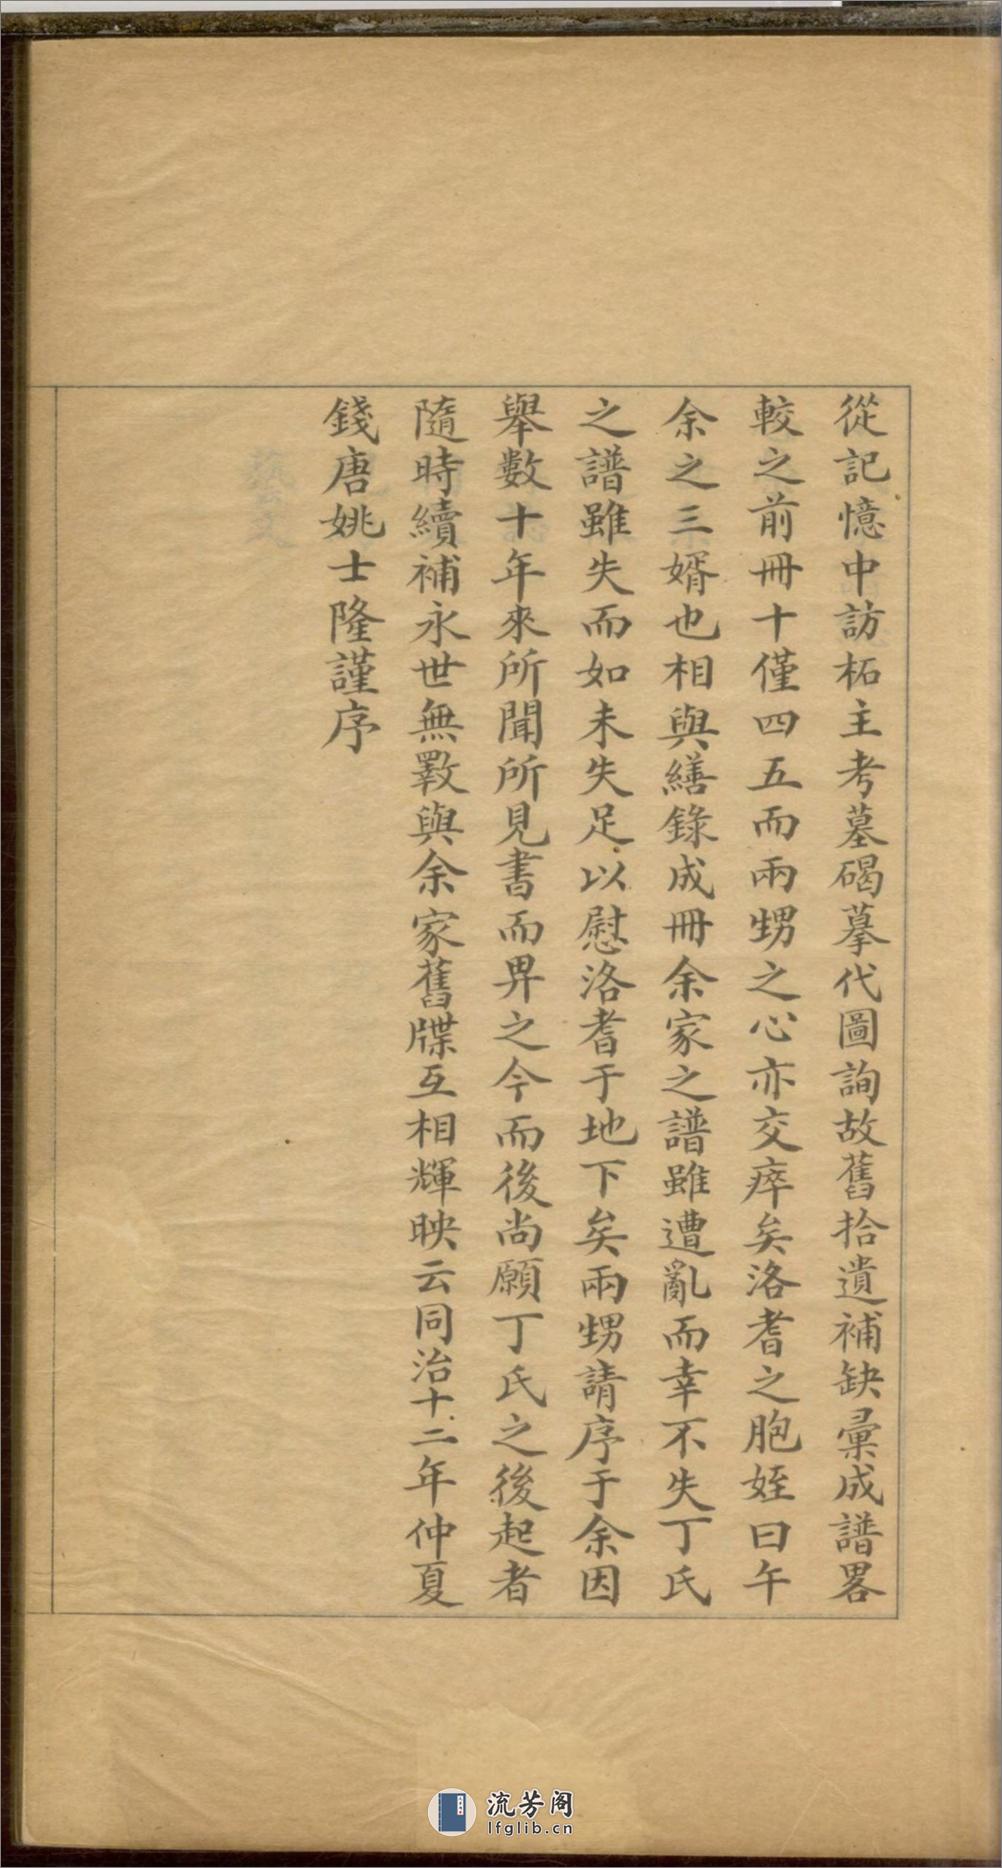 從記憶中訪柘主考墓碣摹代圖詢故舊拾遺補缺彙成譜畧
較之前冊十僅四五而兩甥之心亦交瘁矣洛耆之胞姪曰午
余之三婿也相與繕錄成冊余家之譜雖遭亂而幸不失丁氏
之譜雖失而如未失足以慰洛耆于地下矣兩甥請序于余因
舉數十年來所聞所見書而畀之今而後尚願丁氏之後起者
隨時續補永世無斁與余家舊牒互相輝映云同治十二年仲夏
錢唐姚士隆謹序
流芳阁
lfglib.cn